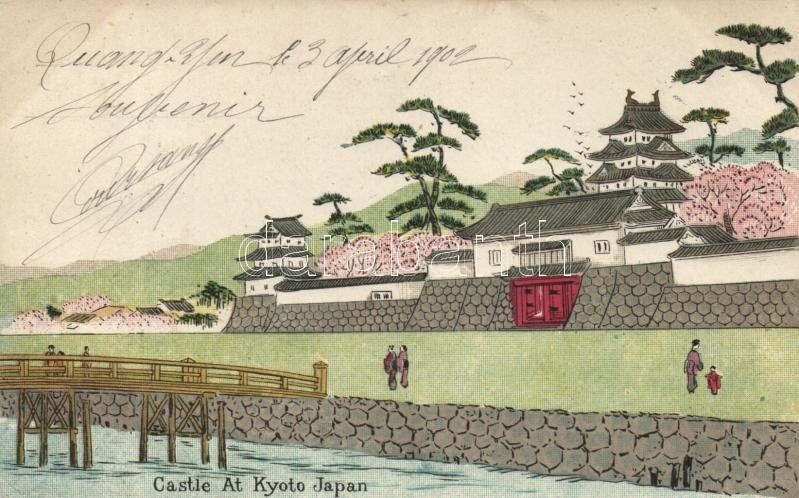 Quang-Yen le 3 april 1902
Souvenir
darabanth
Castle At Kyoto Japan